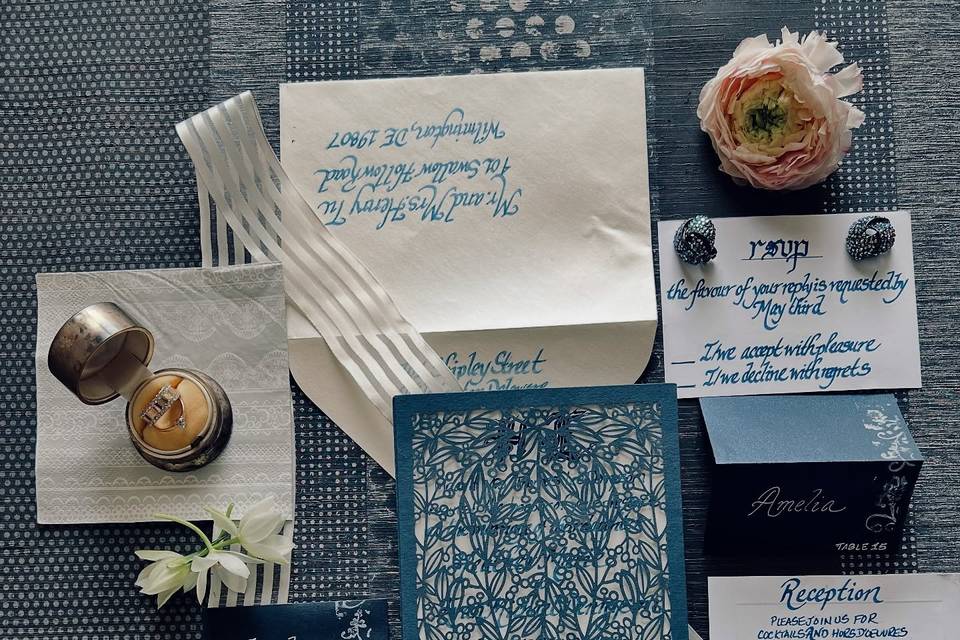 Mr. and Mrs. Henry Tu
Swallow Hollow Road
Wilmington, DE 19807
Street
rsvp
the favour of your reply is requested by
May third
I/we accept with pleasure
I/we decline with regrets
Amelia
TABLE 15
Reception
PLEASE JOIN US FOR
COCKTAILS AND HORS D'OEUVRES